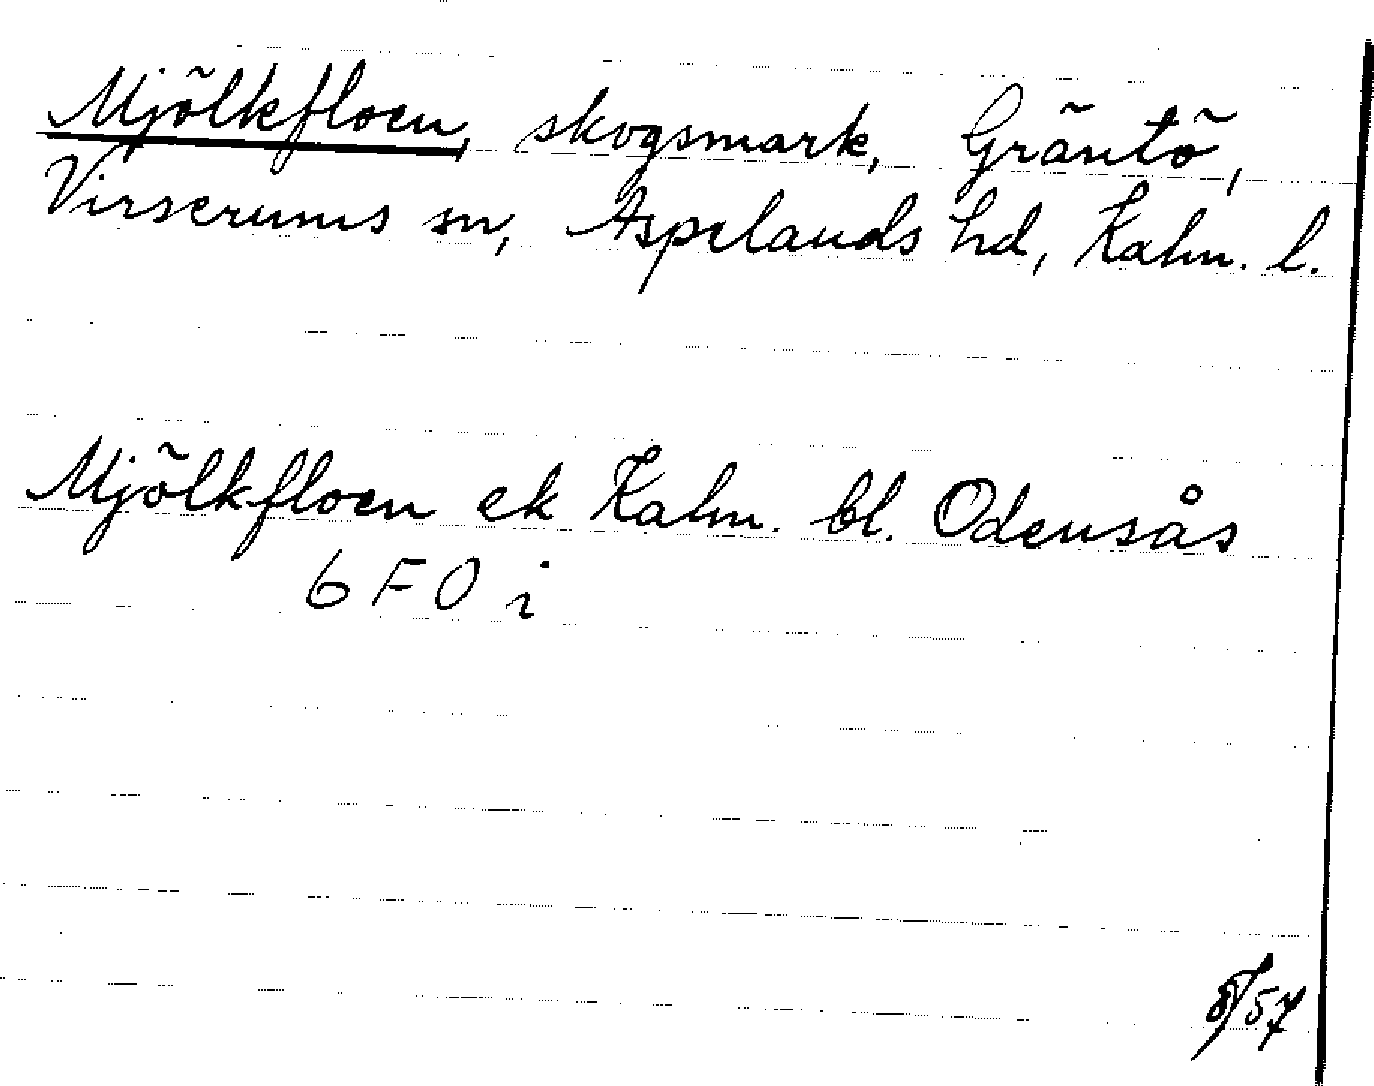 Mjölkfloen, skogsmark, Gräntö,
Virserums sn, Aspelands hd, Kalm. l.
Mjölkfloen ek Kalm. bl. Odensås
6 F 0 i